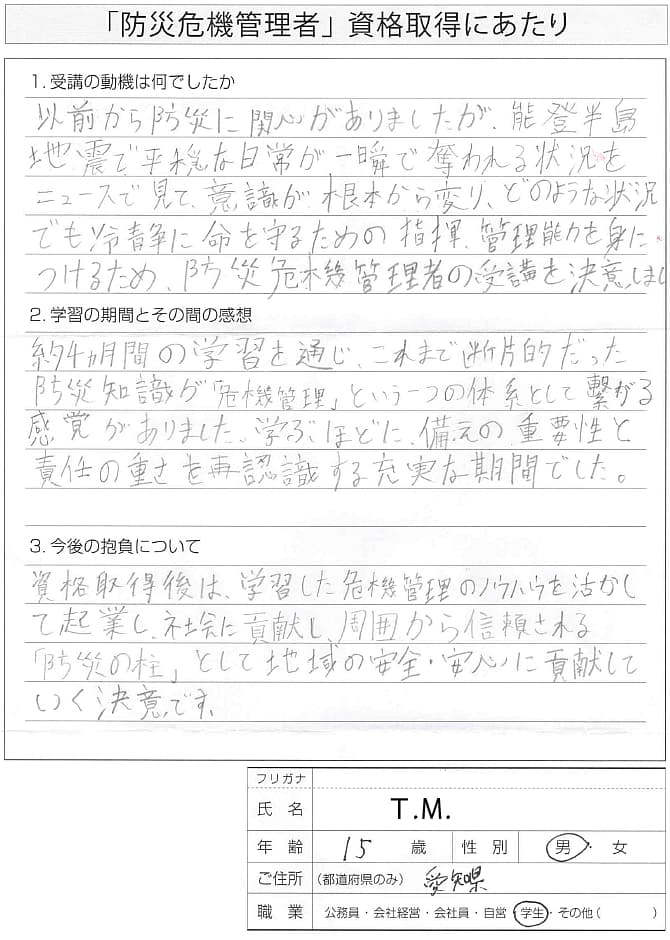 「防災危機管理者」資格取得にあたり
1. 受講の動機は何でしたか
以前から防災に関心がありましたが、能登半島
地震で平穏な日常が一瞬で奪われる状況を
ニュースで見て、意識が根本から変り、どのような状況
でも冷静に命を守るための指揮、管理能力を身に
つけるため、防災危機管理者の受講を決意しまし
2. 学習の期間とその間の感想
約4ヵ月間の学習を通じ、これまで断片的だった
防災知識が「危機管理」という一つの体系として繋がる
感覚がありました。学ぶほどに、備えの重要性と
責任の重さを再認識する充実な期間でした。
3. 今後の抱負について
資格取得後は、学習した危機管理のノウハウを活かし
て起業し、社会に貢献し、周囲から信頼される
「防災の柱」として地域の安全・安心に貢献して
いく決意です。
フリガナ
氏名 T.M.
年齢 15 歳 性別 男・女
ご住所 (都道府県のみ) 愛知県
職業 公務員・会社経営・会社員・自営・学生・その他( )